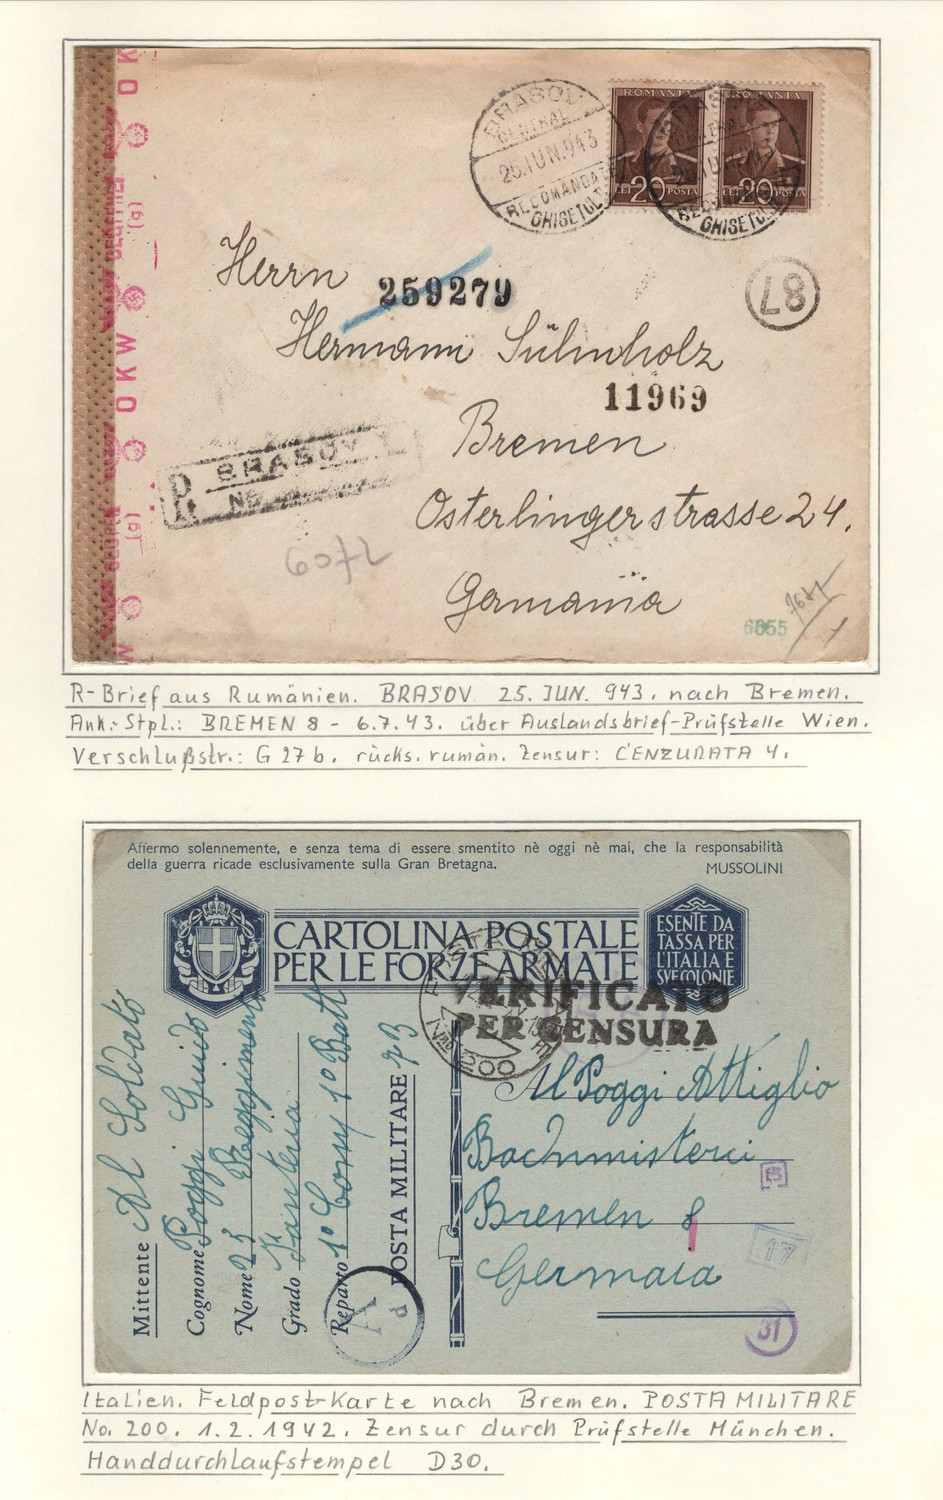 BRASOV
CENTRAL
25.IUN.943
RECOMANDATE
GHISETUL
ROMANIA
ROMANIA
LEI 20 POSTA
LEI 20 POSTA
GHISETUL
87
Herrn
259279
Hermann Sülmholz
11969
Bremen
R BRASOV 1
No
Osterlingerstrasse 24.
6072
Germania
6855
OKW
Geöffnet
(g)
(g)
R-Brief aus Rumänien. BRASOV 25. JUN. 943. nach Bremen.
Ank.-Stpl.: BREMEN 8 - 6.7.43. über Auslandsbrief-Prüfstelle Wien.
Verschlußstr.: G 27 b. rücks. rumän. Zensur: CENZURATA 4.
Affermo solennemente, e senza tema di essere smentito nè oggi nè mai, che la responsabilità
della guerra ricade esclusivamente sulla Gran Bretagna.
MUSSOLINI
CARTOLINA POSTALE
PER LE FORZE ARMATE
ESENTE DA
TASSA PER
L'ITALIA E
SVE COLONIE
VERIFICATO
PER CENSURA
No 200
Mittente Al Soldato
Cognome Poggi Guido
Nome 23 Reggimento
Grado Fanteria
Reparto 1º Comp 1º Batt
POSTA MILITARE 73
Al Poggi Attiglio
Bachmisterci
Bremen
Germaia
B
17
31
A
d
Italien. Feldpost-Karte nach Bremen. POSTA MILITARE
No. 200. 1.2.1942. Zensur durch Prüfstelle München.
Handdurchlaufstempel D30.